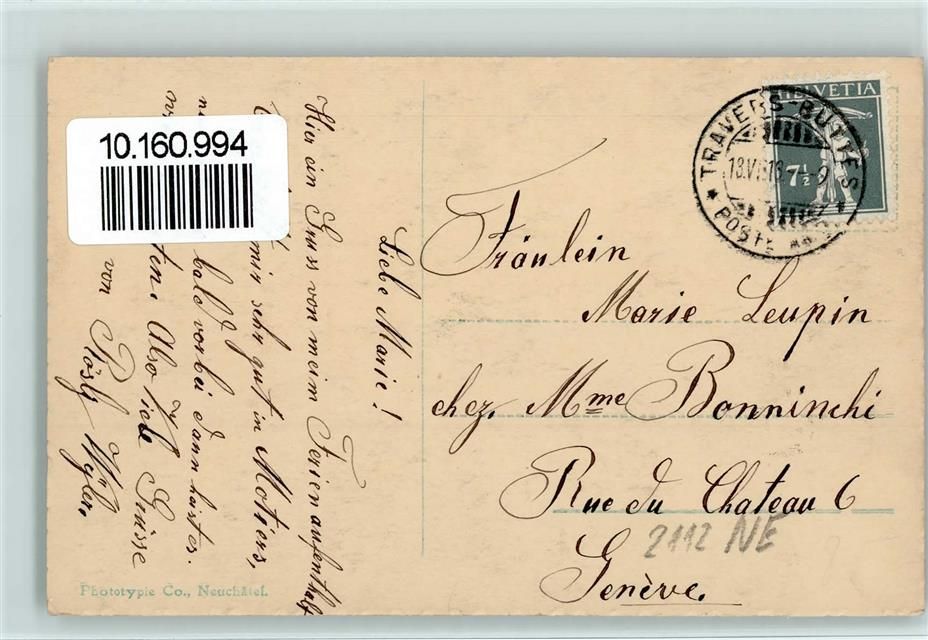 10.160.994
HELVETIA
7½
TRAVERS-BUTTES
13.VI 18 - 9
POSTE
Fräulein
Marie Leupin
chez. Mme Bonninchi
Rue du Chateau 6
Genève.
2112 NE
Liebe Marie!
Hier ein Gruss von meim Ferienaufenthalt
mir sehr gut in Motiers,
bald vorbei dann heist es
Also viele Grüsse
von Rösly Wyler.
Phototypie Co., Neuchâtel.